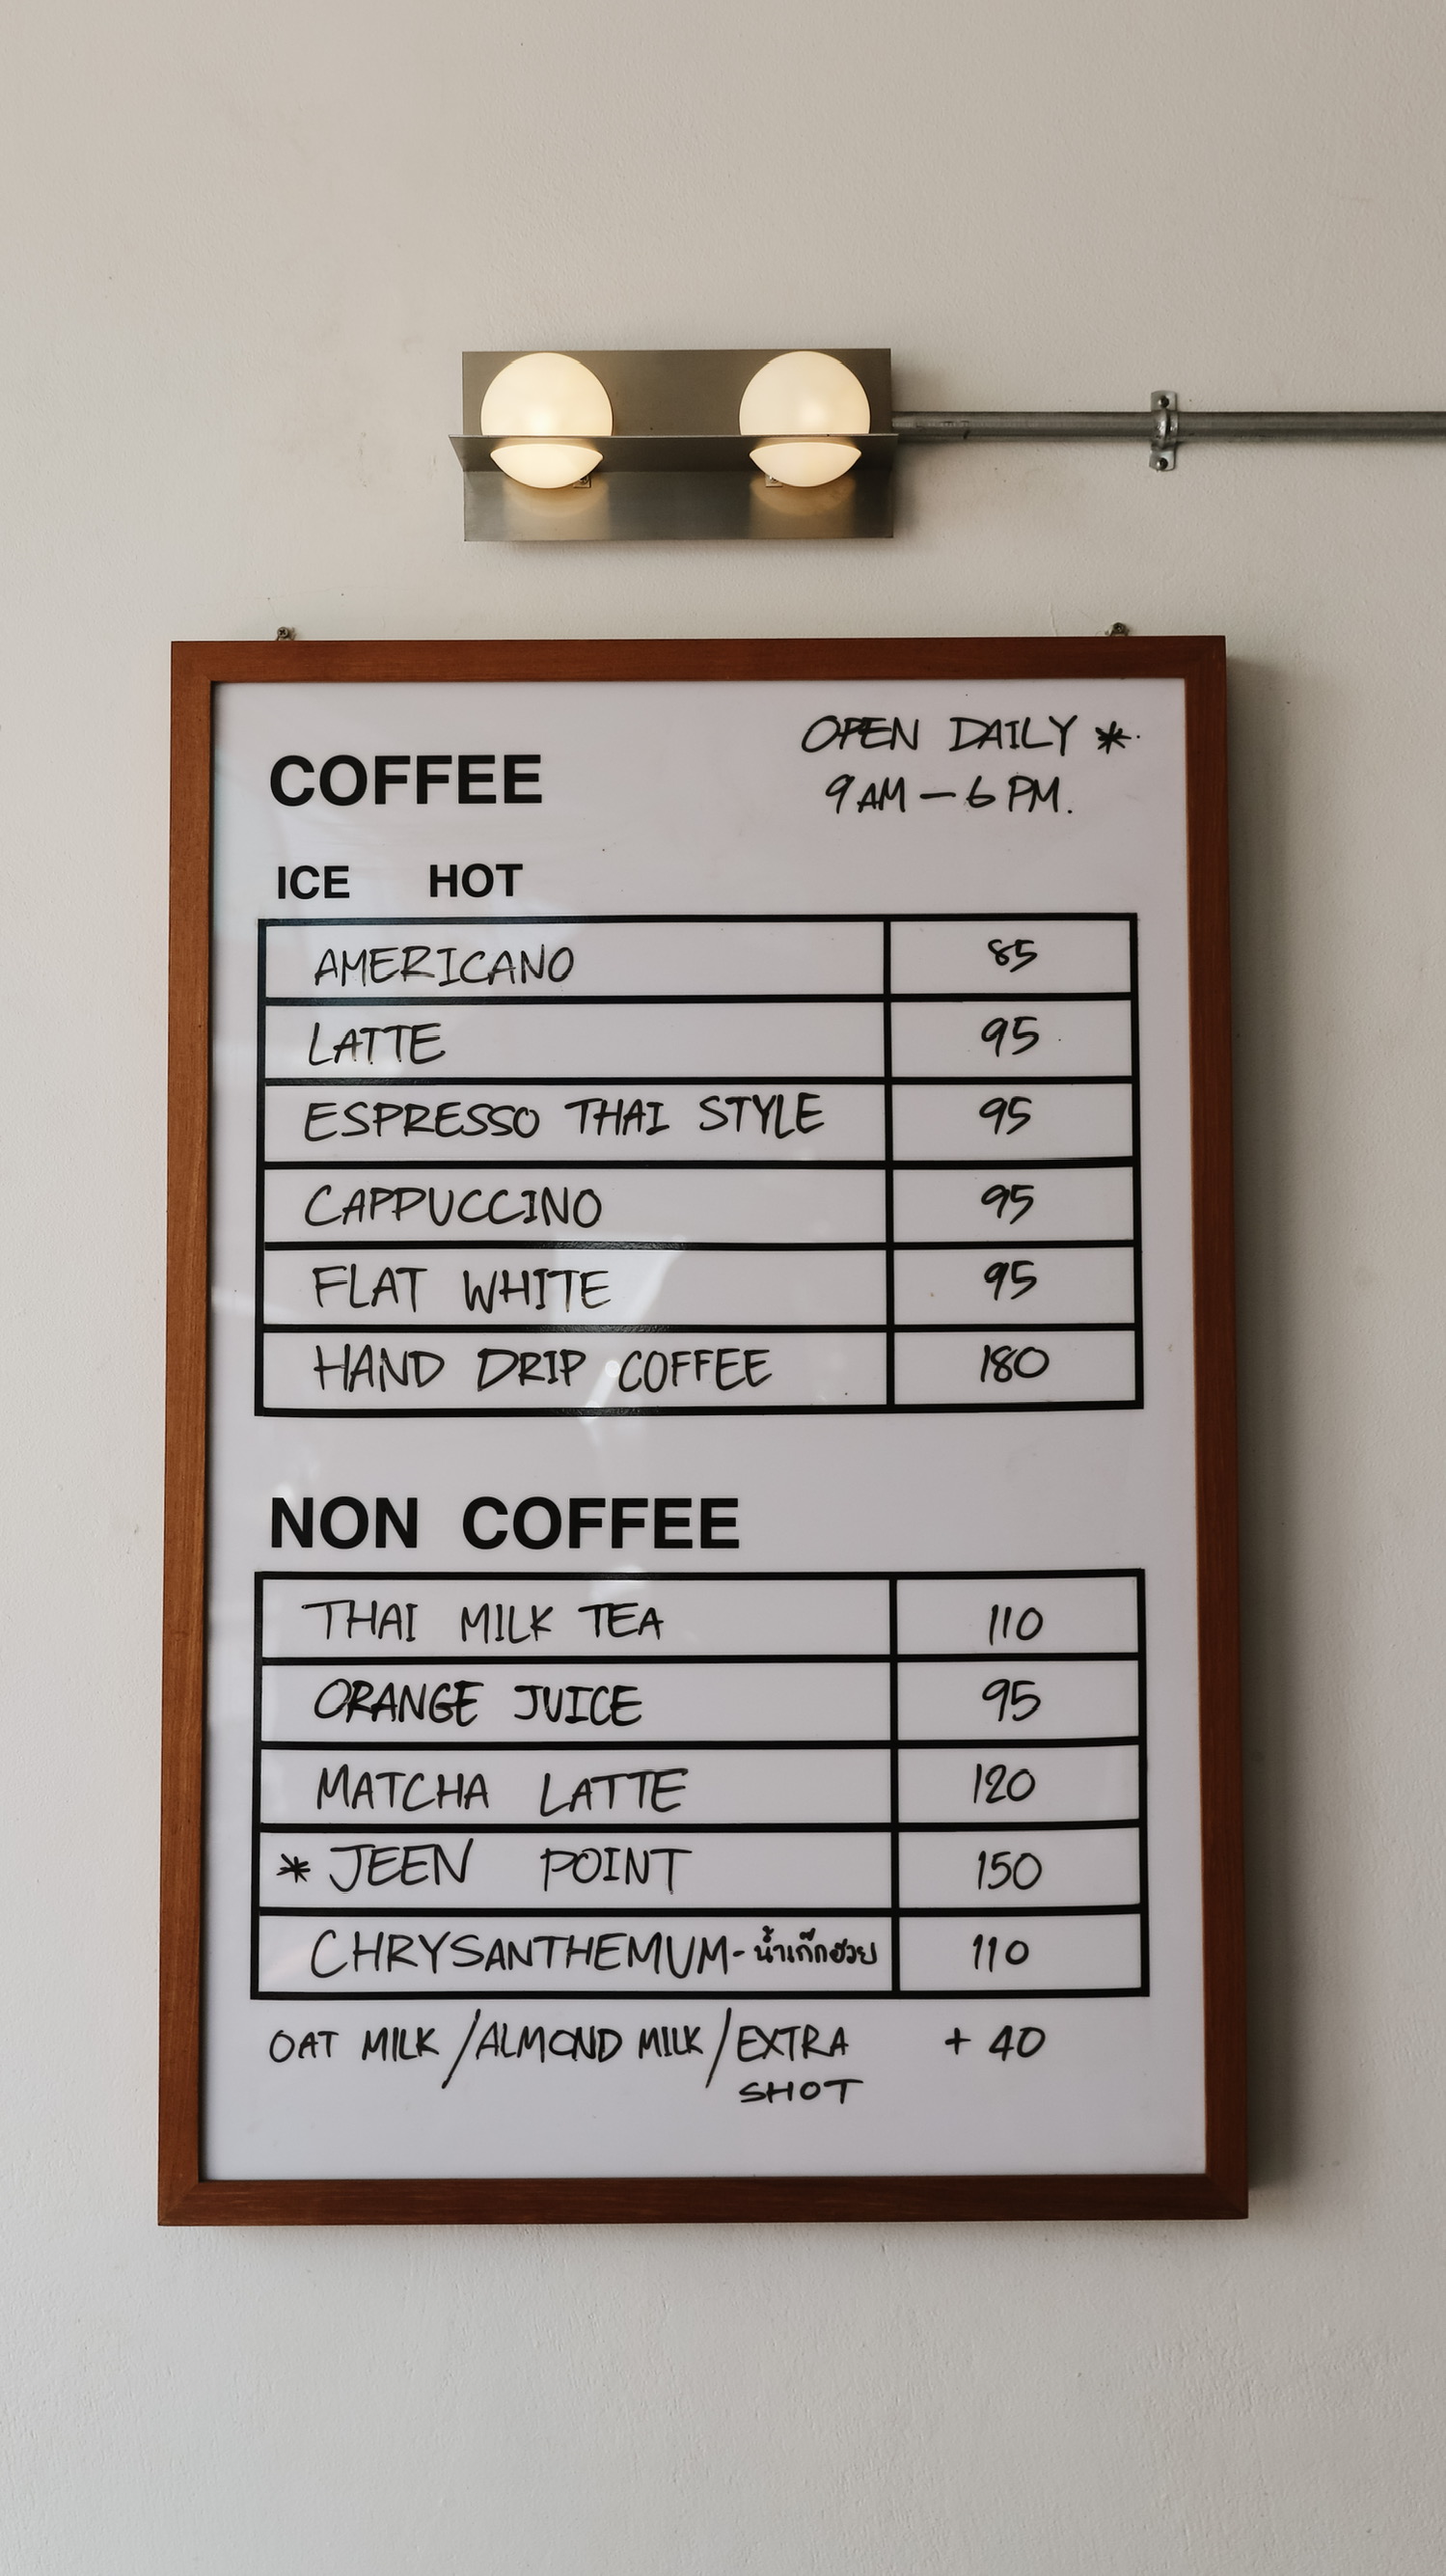 OPEN DAILY *
COFFEE
9 AM — 6 PM.
ICE HOT
AMERICANO 85
LATTE 95
ESPRESSO THAI STYLE 95
CAPPUCCINO 95
FLAT WHITE 95
HAND DRIP COFFEE 180
NON COFFEE
THAI MILK TEA 110
ORANGE JUICE 95
MATCHA LATTE 120
* JEEN POINT 150
CHRYSANTHEMUM - น้ำเก๊กฮวย 110
OAT MILK / ALMOND MILK / EXTRA + 40
SHOT